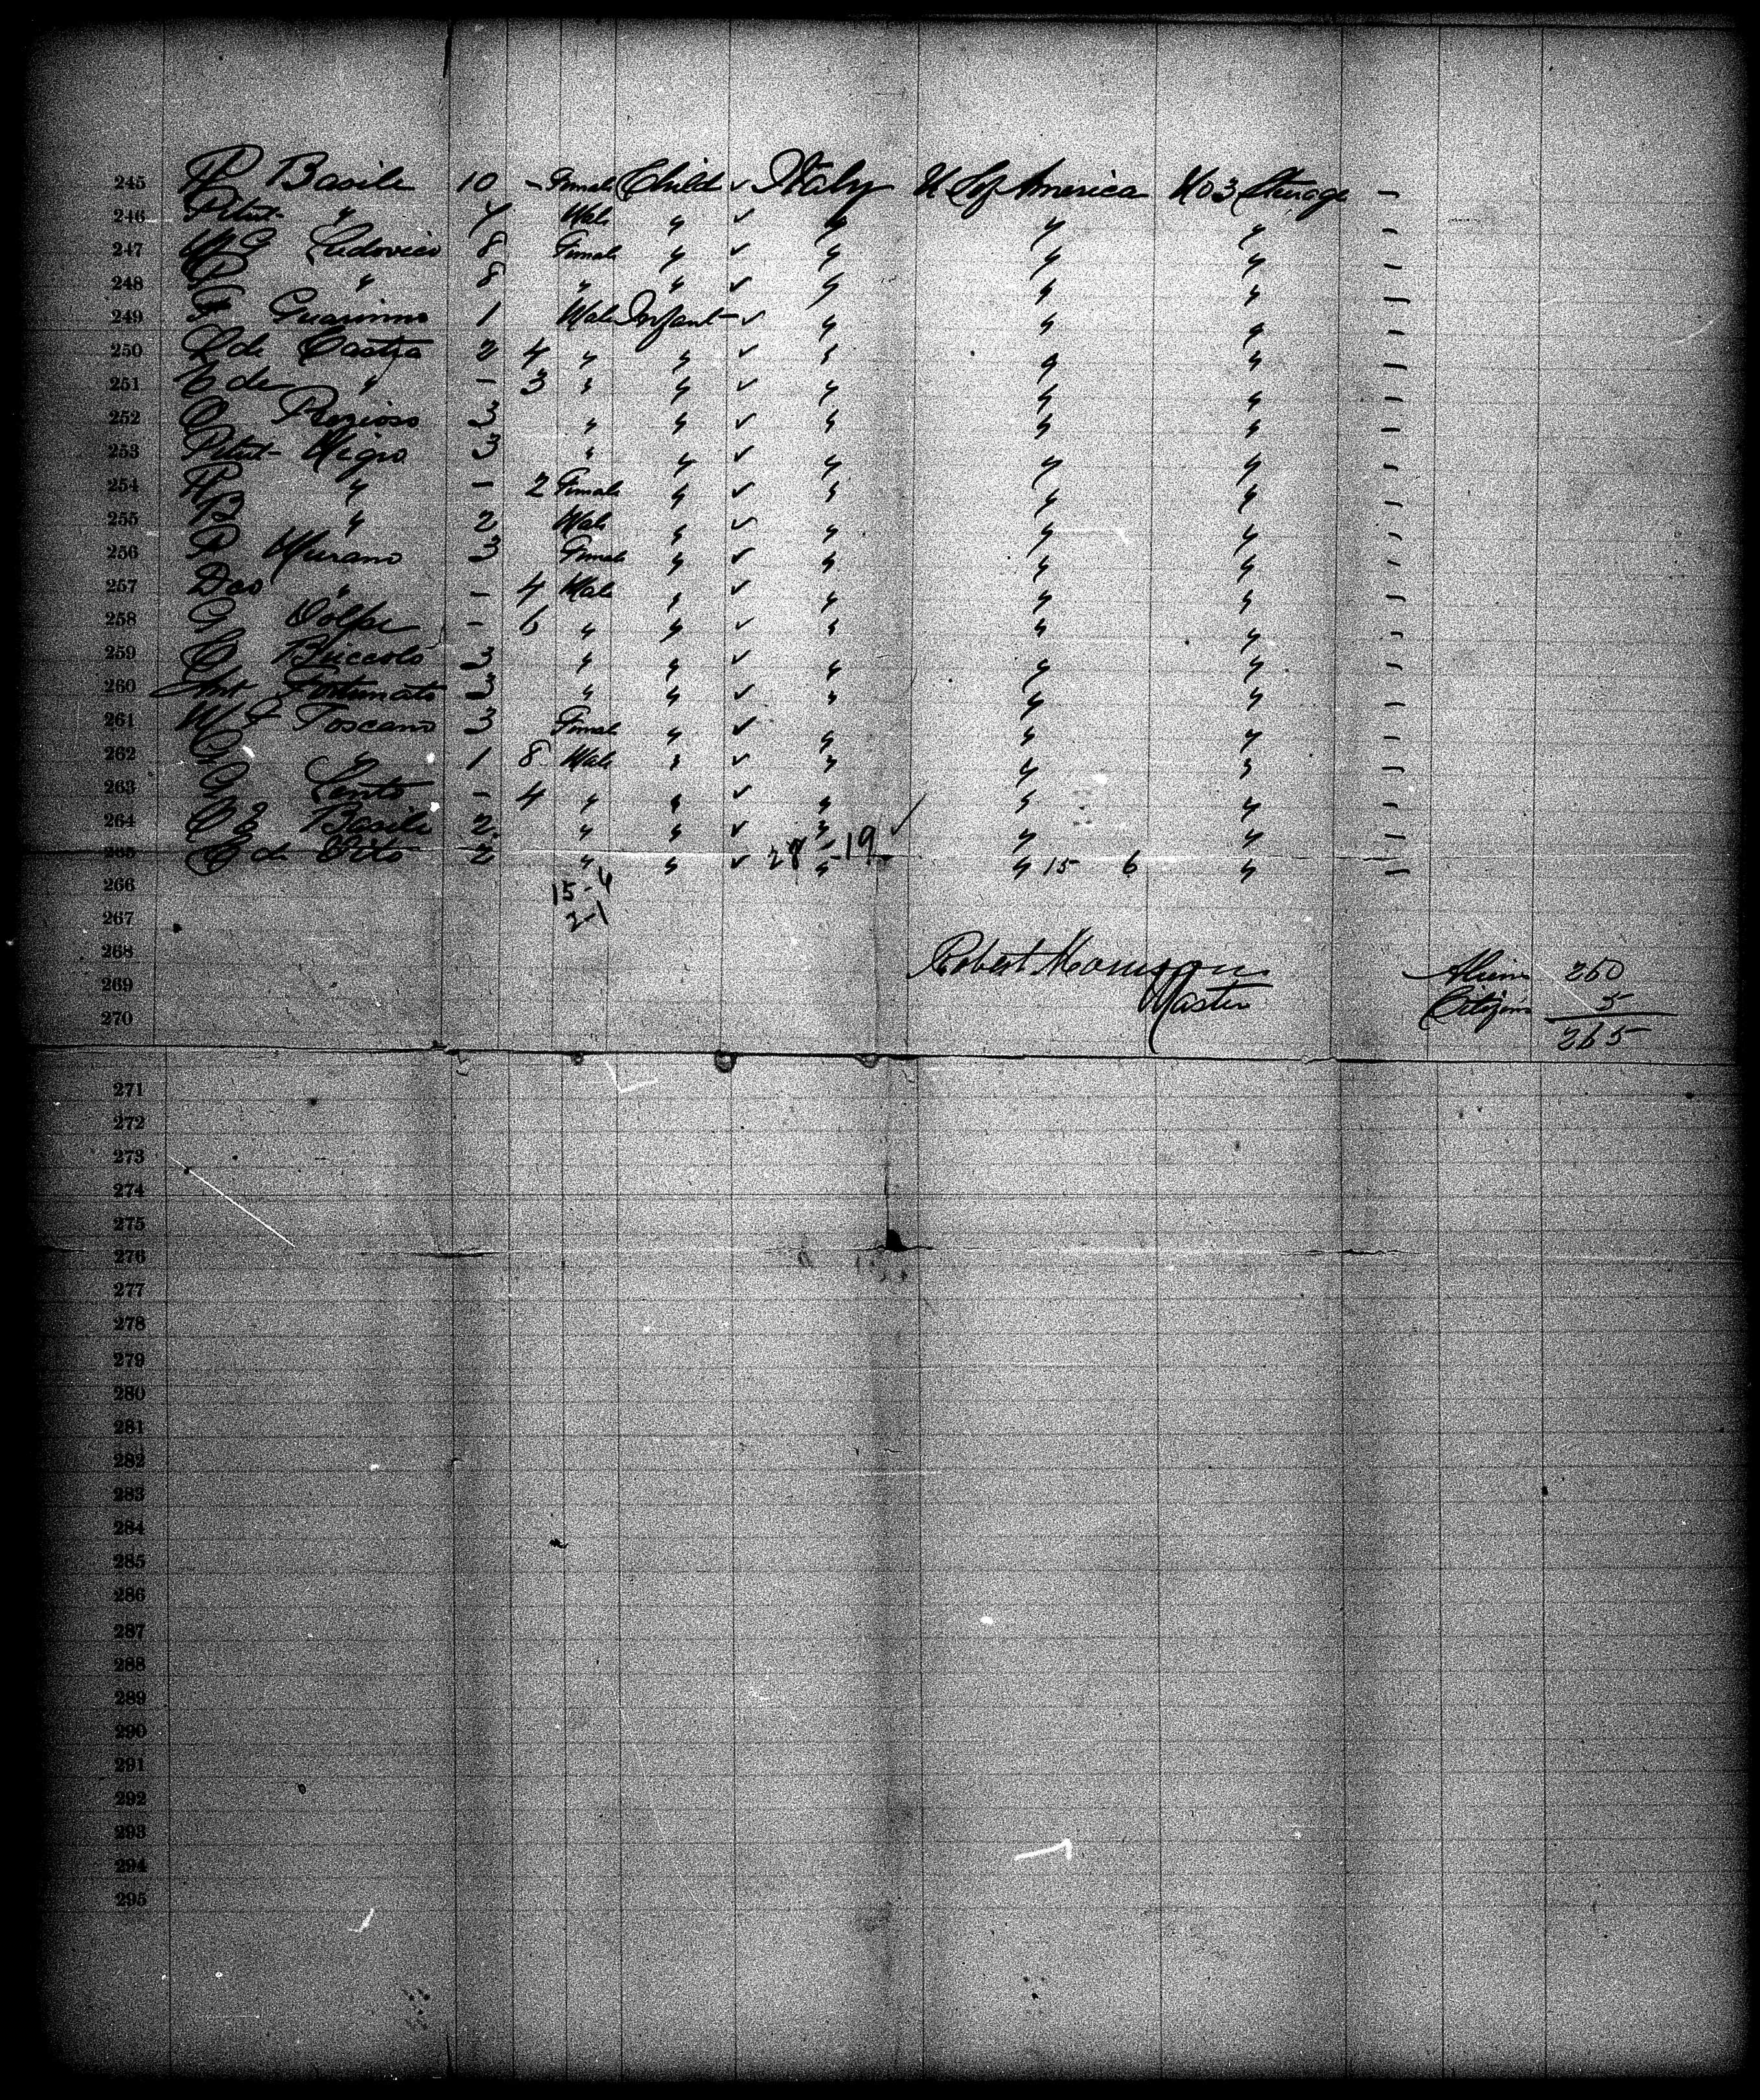 245 R Basile 10 - Female Child ✓ Italy U S of America No 3 Steerage -
246 Petut- " 7 Male " ✓ " " " -
247 M G Ludovico 8 Female " ✓ " " " -
248 R " 8 " " ✓ " " " -
249 F Guarinno 1 Male Infant - ✓ " " " -
250 L de Castro 2 4 " " ✓ " " " -
251 C de " - 3 " " ✓ " " " -
252 C Prezioso 3 " " ✓ " " " -
253 Petut- Nigro 3 " " ✓ " " " -
254 R " - 2 Female " ✓ " " " -
255 B " 2 Male " ✓ " " " -
256 R Murano 3 Female " ✓ " " " -
257 Dco " - 4 Male " ✓ " " " -
258 G Dolfe - 6 " " ✓ " " " -
259 C Buccolo 3 " " ✓ " " " -
260 Ant Fortunato 3 " " ✓ " " " -
261 M G Toscano 3 Female " ✓ " " " -
262 G " 1 8 Male " ✓ " " " -
263 G Lento - 4 " " ✓ " " " -
264 C G Basile 2 " " ✓ " " " -
265 C de Vito 2 " " ✓ 28 " - 19 ✓ " 15 6 " -
266 15-4
267 2-1
268 Robert Morrison Aliens 260
269 Master Citizens 5
270 265
271
272
273
274
275
276
277
278
279
280
281
282
283
284
285
286
287
288
289
290
291
292
293
294
295